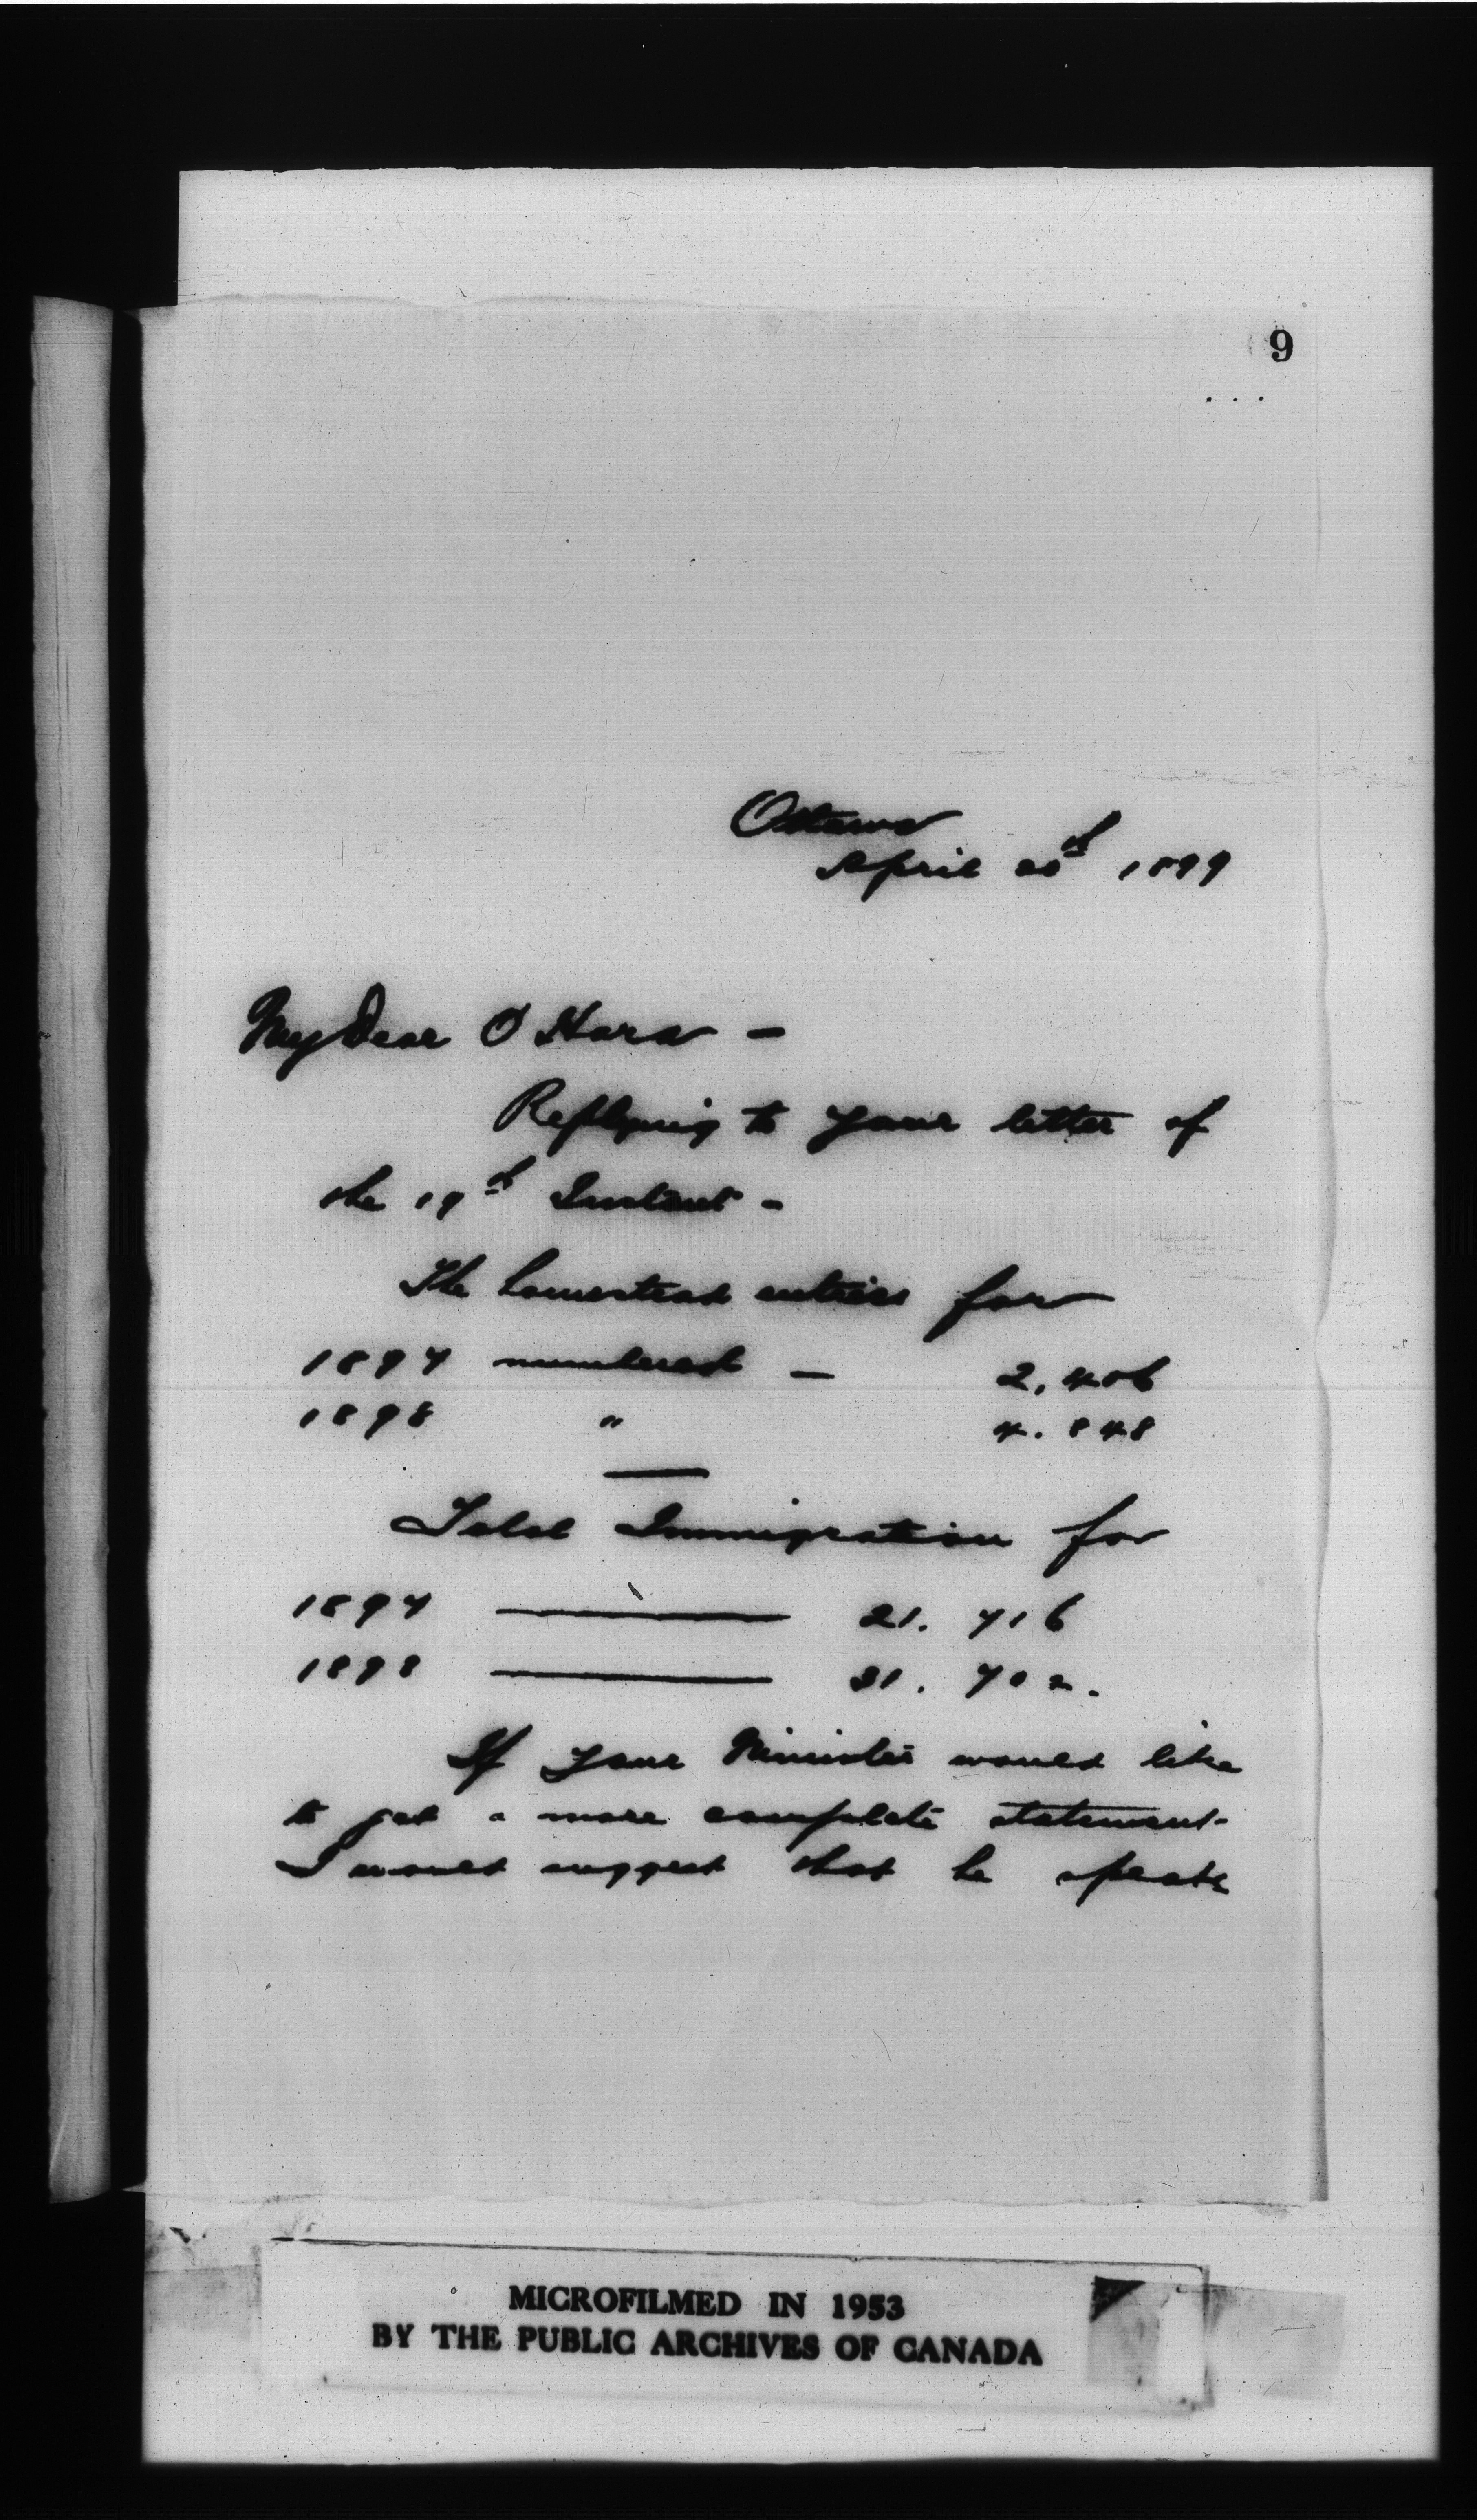 9
...
Ottawa
April 20th 1899
My Dear O'Hara -
Replying to your letter of
the 19th Instant -
The homestead entries for
1897 numbered - 2,406
1898 " 4.848
Total Immigration for
1897 21. 716
1898 31. 702.
If your Minister would like
to get a more complete statement
I would suggest that he speak
MICROFILMED IN 1953
BY THE PUBLIC ARCHIVES OF CANADA